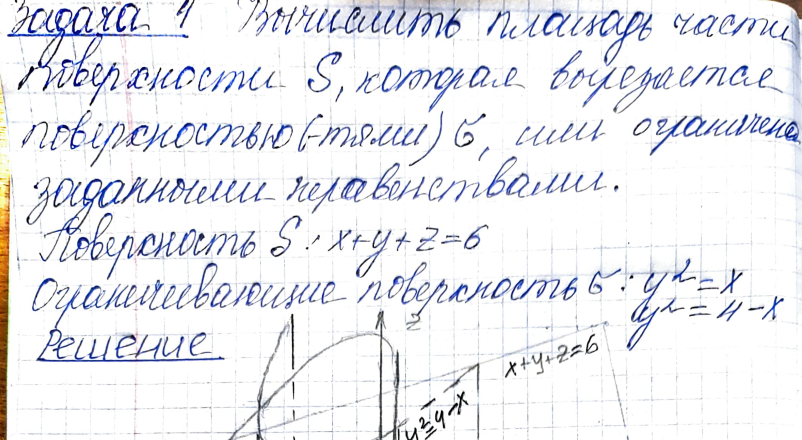 Задача 4 Вычислить площадь части
поверхности S, которая вырезается
поверхностью(-тями) σ, или ограничена
заданными неравенствами.
Поверхность S: x+y+z=6
Ограничивающие поверхность σ: y²=x
y²=4-x
Решение.
z
x+y+z=6
y²=4-x